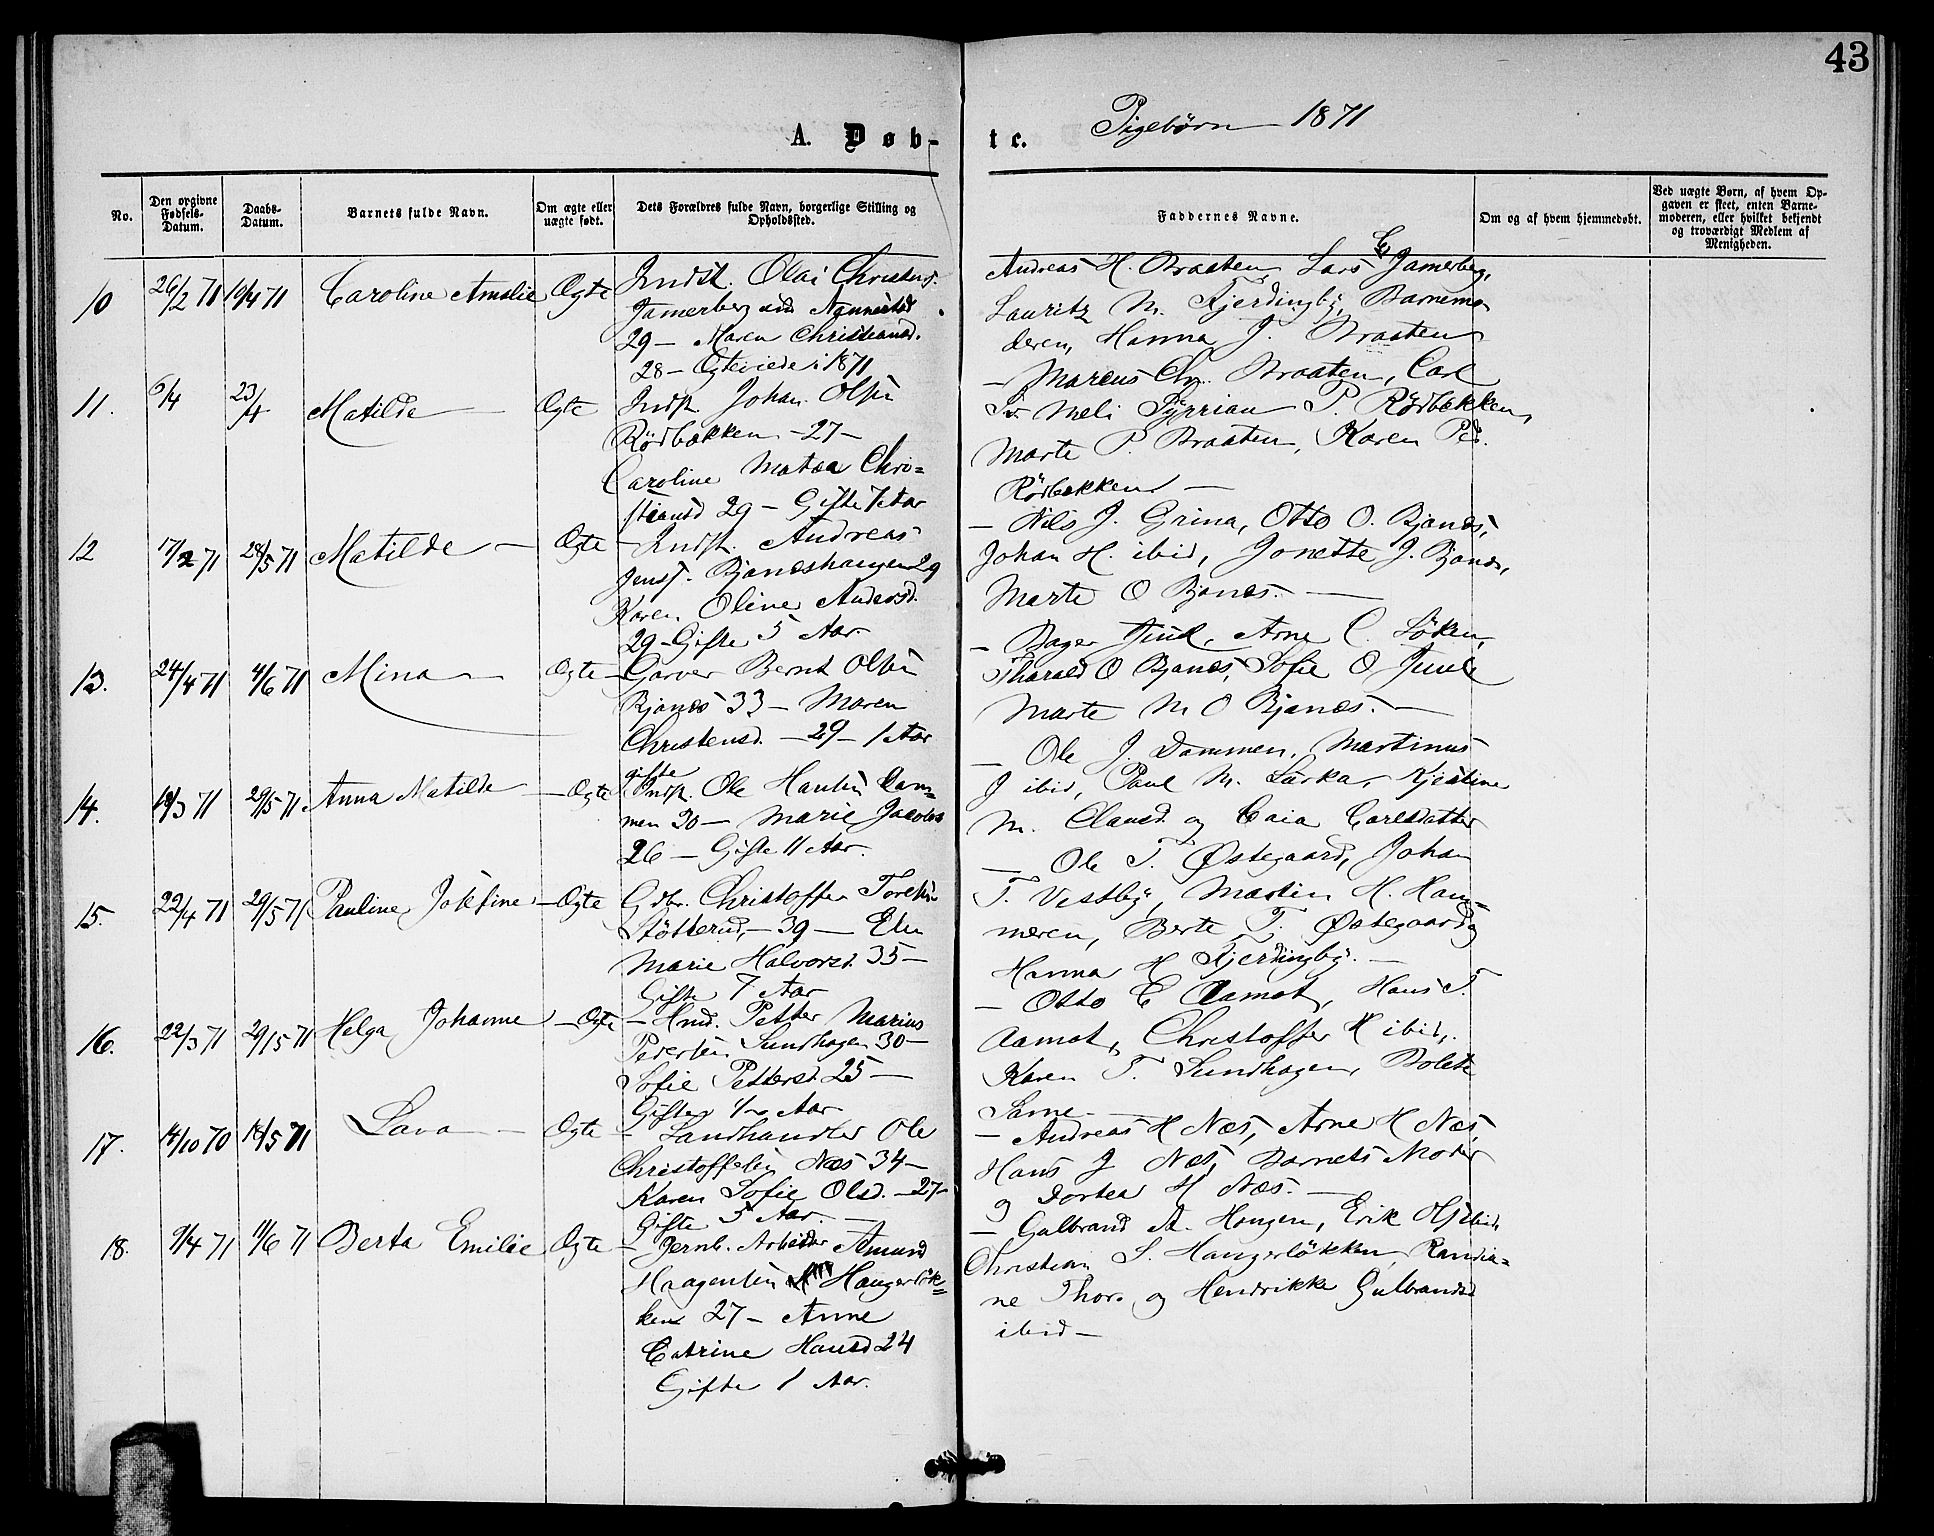 43
Pigebørn 1871
A. Døb-
te.
No.
Den opgivne Fødsels-Datum.
Daabs-Datum.
Barnets fulde Navn.
Om ægte eller uægte født.
Dets Forældres fulde Navn, borgerlige Stilling og Opholdssted.
Faddernes Navne.
Om og af hvem hjemmedøbt.
Ved uægte Børn, af hvem Opgaven er skeet, enten Barnemoderen, eller hvilket bekjendt og troværdigt Medlem af Menigheden.
10 26/2 71 10/4 71 Caroline Amalie Ægte Indst. Olai Christens.
Jamerberg
29 – Maren Christiansd.
28 – Ægteviede i 1871
Andreas H. Braaten, Lars C Jamerberg,
Lauritz M. Fjerdingby, Barnemo
deren, Hanna J. Braaten
11. 6/4 23/4 Matilde Ægte Indst. Johan Olsen
Rødbækken – 27 –
Caroline Matea Chri-
stiansd 29 – Gifte 7 Aar
– Marcus Chr. Braaten, Carl
P. Rødbækken,
Marte P. Braaten, Karen Ped.
Rødbækken –
12 17/2 71 28/5 71 Matilde – Ægte – Indst. Andreas
Jenss. Bjaneshaugen 29
Karen Oline Andersd.
29 – Gifte 5 Aar.
– Nils J. Grina, Otto O. Bjanes,
Johan H. ibid, Jonette J. Bjanes,
Marte O Bjanes. –
13. 24/4 71 4/6 71 Mina Ægte – Garver Bernt Olsen
Bjanes 33 – Maren
Christensd. – 29 – 1 Aar
gifte
– Bager Juul, Arne C. Løken,
Tharald O Bjanes, Sofie O Juul
Marte M O Bjanes. –
14. 18/3 71 29/5 71 Anna Matilde – Ægte Indst. Ole Hansen Dam-
men 30 – Marie Jacobs
26 – Gifte 11 Aar.
– Ole J. Dammen, Martinus
J ibid, Paul M. Larka, Kjestine
M. Clausd. og Caia Carlsdatter
15. 22/4 71 29/5 71 Pauline Josefine – Ægte Gdbr. Christoffer Toresen
Støtterud, – 39 – Elen
Marie Halvorsd. 35 –
Gifte 7 Aar
– Ole T. Østegaard, Johan
T. Vestby, Martin H. Ham-
meren, Berte T. Østegaard og
Hanna H Fjerdingby. –
16. 22/3 71 29/5 71 Helga Johanne – Ægte – Hmd. Petter Marius
Pedersen Sundhagen 30 –
Sofie Pettersd. 25 –
Gifte 1/2 Aar
– Otto C Aamot, Hans T.
Aamot, Christoffer H ibid,
Karen T. Sundhagen, Bolete
Same. –
17. 14/10 70 18/5 71 Lava – Ægte – Landhandler Ole
Christoffersen Næs 34 –
Karen Sofie Olsd. – 27 –
Gifte 5 Aar. –
– Andreas H Næs, Arne H Næs,
Hans J Næs, Barnets Moder
og Dortea H Næs. –
18. 9/4 71 11/6 71 Berta Emilie Ægte – Jernb. Arbeider Amund
Haagensen Haugerløk-
ken 27 – Anne
Catrine Hansd 24
Gifte 1 Aar.
– Gulbrand A. Haugen, Erik Hj ibid,
Christian S. Haugerløkken, Randia-
ne Thors. og Hendrikke Gulbrandsd
ibid –